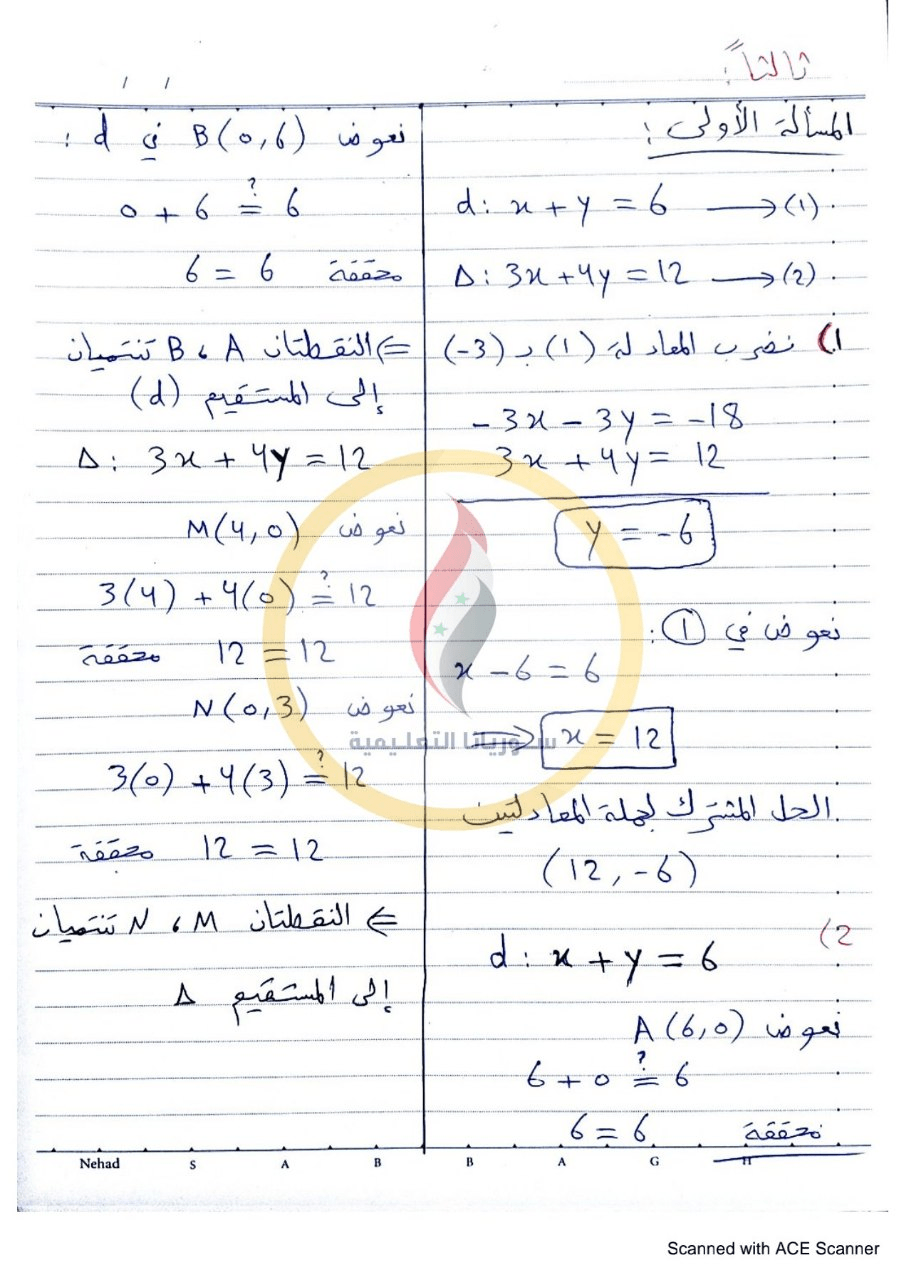 ثالثاً:
/ /
المسألة الأولى:
d: x + y = 6 ⟶ (1)
Δ: 3x + 4y = 12 ⟶ (2)
1) نضرب المعادلة (1) بـ (-3)
-3x - 3y = -18
3x + 4y = 12
y = -6
نعوض في ①:
x - 6 = 6
⟹ x = 12
الحل المشترك لجملة المعادلتين
(12, -6)
2)
d: x + y = 6
نعوض A(6,0)
6 + 0 ≟ 6
6 = 6 محققة
نعوض B(0,6) في d:
0 + 6 ≟ 6
6 = 6 محققة
⇐ النقطتان A، B تنتميان
إلى المستقيم (d)
Δ: 3x + 4y = 12
نعوض M(4,0)
3(4) + 4(0) ≟ 12
12 = 12 محققة
نعوض N(0,3)
3(0) + 4(3) ≟ 12
12 = 12 محققة
⇐ النقطتان M، N تنتميان
إلى المستقيم Δ
سوريانا التعليمية
Nehad S A B B A G H
Scanned with ACE Scanner